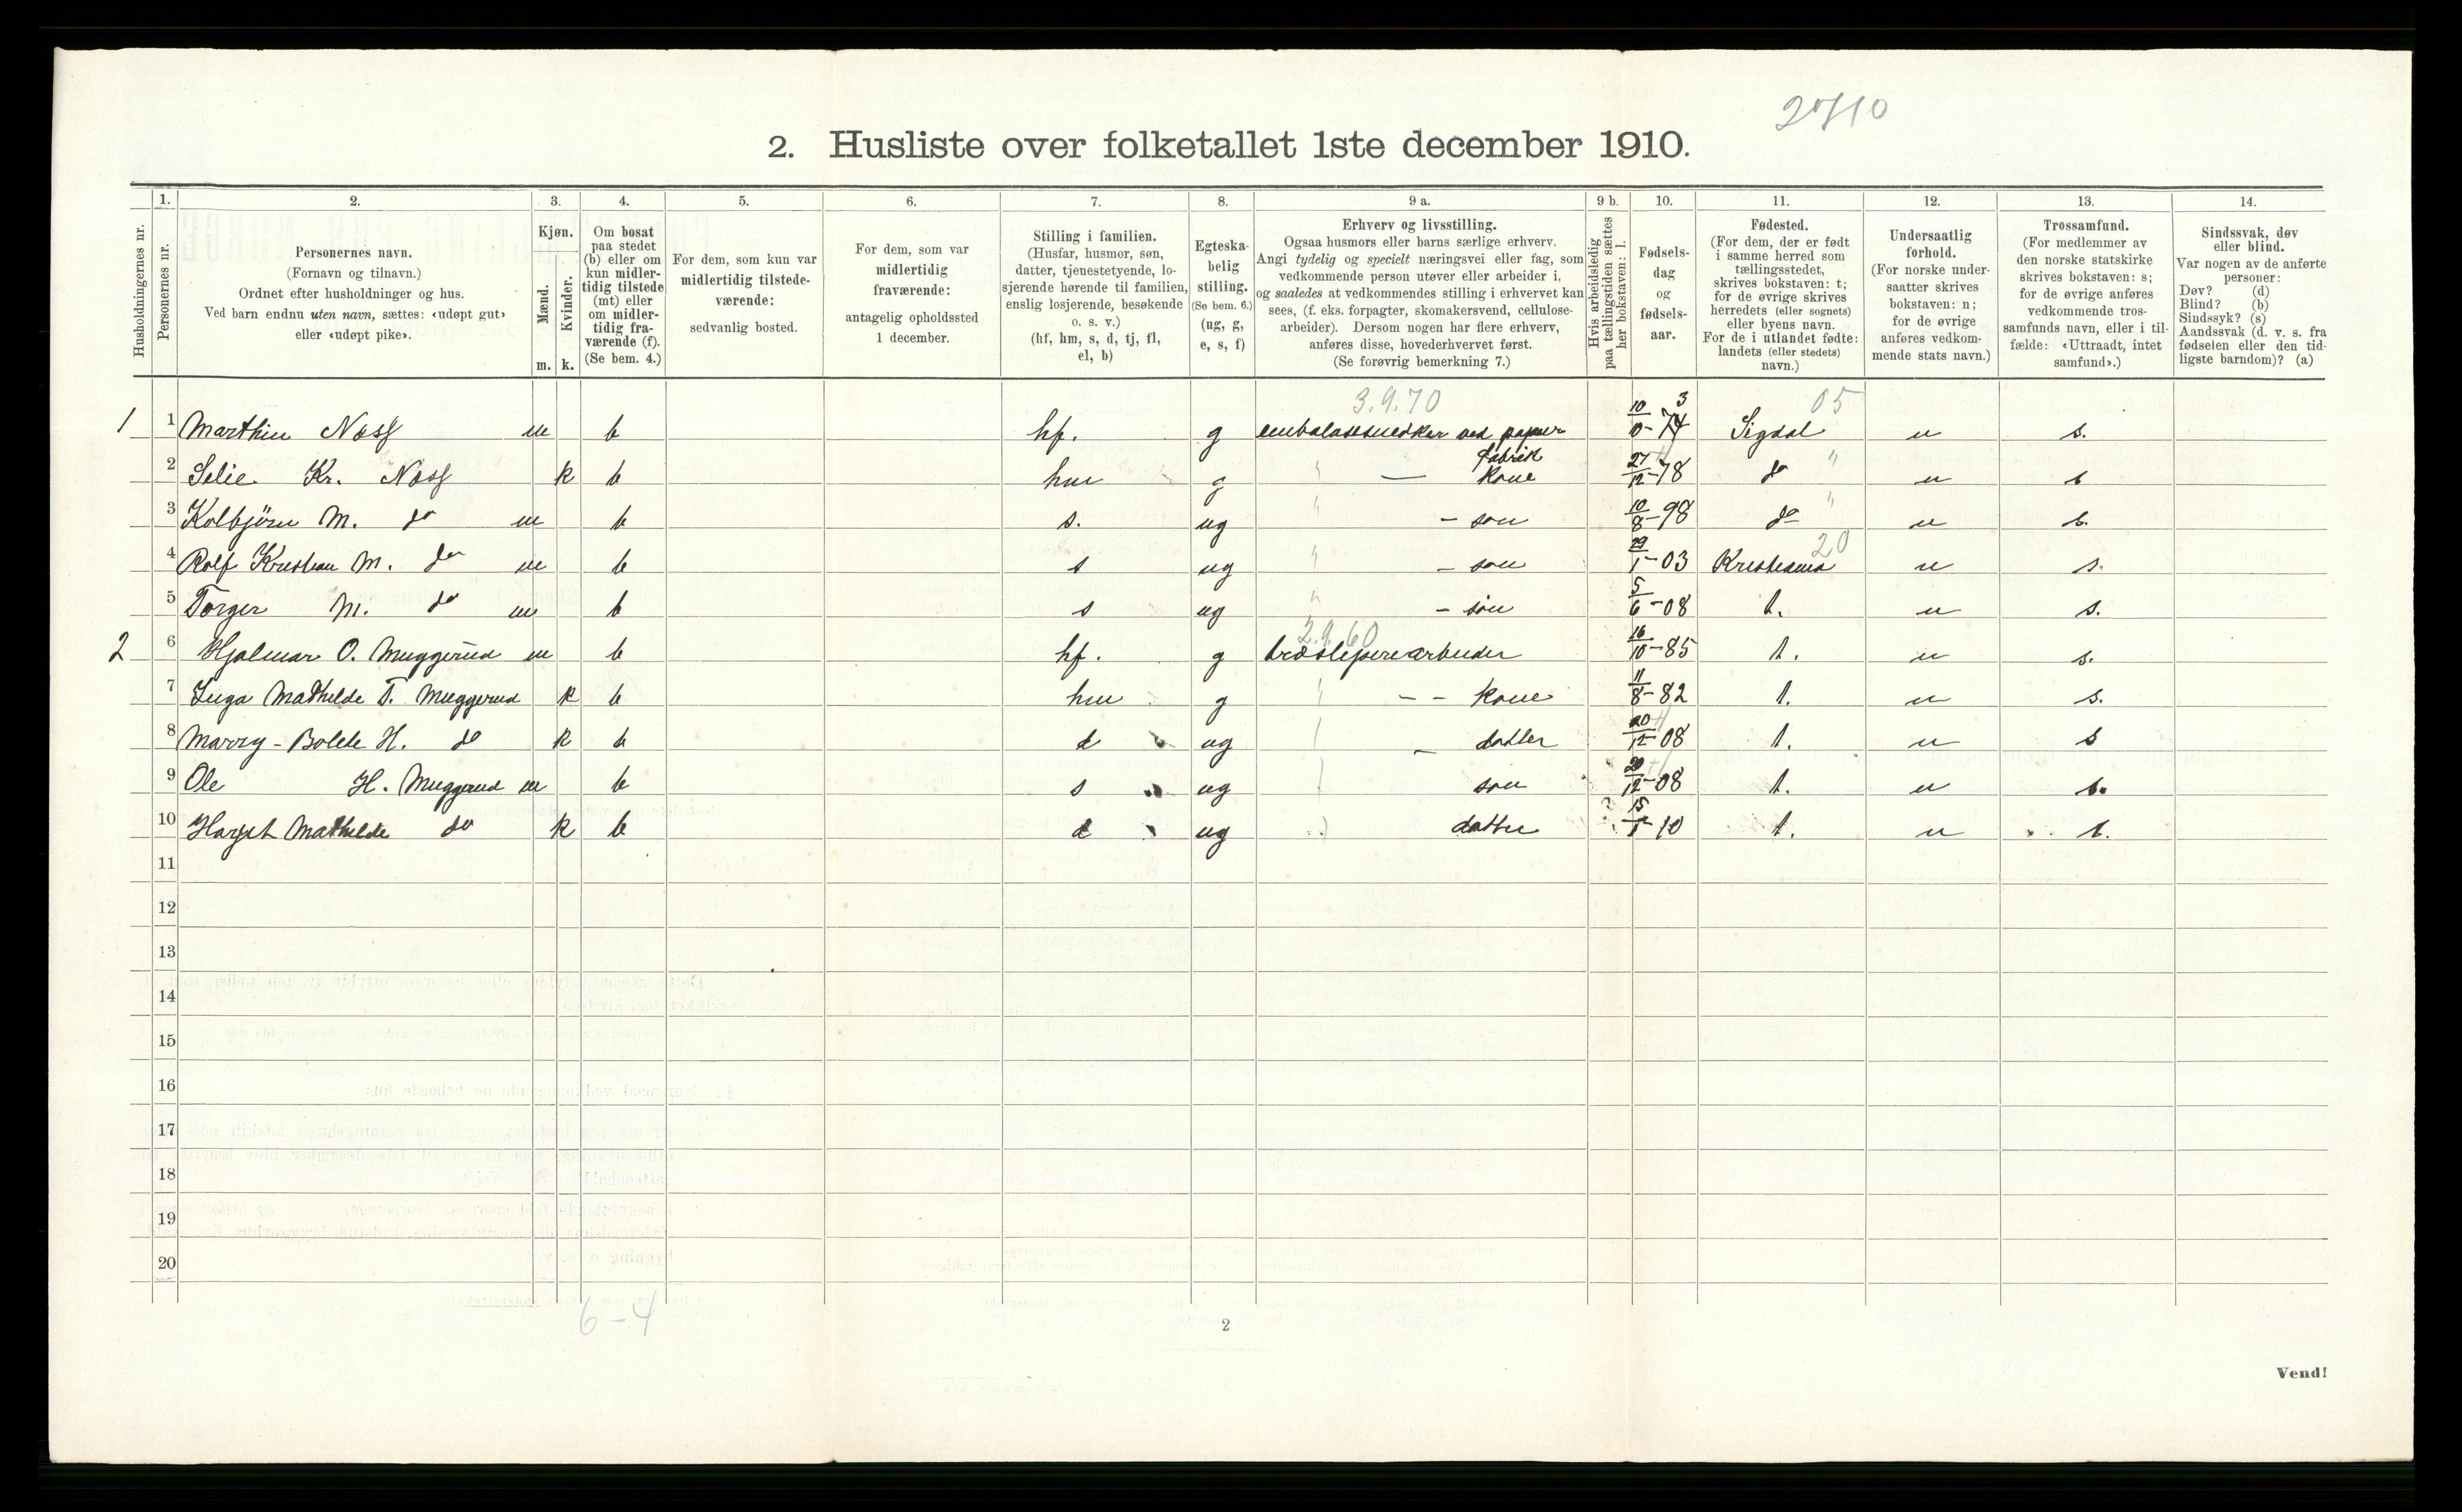 2. Husliste over folketallet 1ste december 1910.
Husholdningernes nr.
1. Personernes nr.
2. Personernes navn.
(Fornavn og tilnavn.)
Ordnet efter husholdninger og hus.
Ved barn endnu uten navn, sættes: «udøpt gut»
eller «udøpt pike».
3. Kjøn.
Mænd. m.
Kvinder. k.
4. Om bosat
paa stedet
(b) eller om
kun midler-
tidig tilstede
(mt) eller
om midler-
tidig fra-
værende (f).
(Se bem. 4.)
5. For dem, som kun var
midlertidig tilstede-
værende:
sedvanlig bosted.
6. For dem, som var
midlertidig
fraværende:
antagelig opholdssted
1 december.
7. Stilling i familien.
(Husfar, husmor, søn,
datter, tjenestetyende, lo-
sjerende hørende til familien,
enslig losjerende, besøkende
o. s. v.)
(hf, hm, s, d, tj, fl,
el, b)
8. Egteska-
belig
stilling.
(Se bem. 6.)
(ug, g,
e, s, f)
9 a. Erhverv og livsstilling.
Ogsaa husmors eller barns særlige erhverv.
Angi tydelig og specielt næringsvei eller fag, som
vedkommende person utøver eller arbeider i,
og saaledes at vedkommendes stilling i erhvervet kan
sees, (f. eks. forpagter, skomakersvend, cellulose-
arbeider). Dersom nogen har flere erhverv,
anføres disse, hovederhvervet først.
(Se forøvrig bemerkning 7.)
9 b. Hvis arbeidsledig
paa tællingstiden sættes
her bokstaven: l.
10. Fødsels-
dag
og
fødsels-
aar.
11. Fødested.
(For dem, der er født
i samme herred som
tællingsstedet,
skrives bokstaven: t;
for de øvrige skrives
herredets (eller sognets)
eller byens navn.
For de i utlandet fødte:
landets (eller stedets)
navn.)
12. Undersaatlig
forhold.
(For norske under-
saatter skrives
bokstaven: n;
for de øvrige
anføres vedkom-
mende stats navn.)
13. Trossamfund.
(For medlemmer av
den norske statskirke
skrives bokstaven: s;
for de øvrige anføres
vedkommende tros-
samfunds navn, eller i til-
fælde: «Uttraadt, intet
samfund».)
14. Sindssvak, døv
eller blind.
Var nogen av de anførte
personer:
Døv? (d)
Blind? (b)
Sindssyk? (s)
Aandssvak (d. v. s. fra
fødselen eller den tid-
ligste barndom)? (a)
3.9.70 3 05
1 1 Marthin Næss m b hf. g embalasesnedker ved papir fabrik 10/10-74 Sigdal n s.
2 Selie Kr. Næss k b hm g " — kone 27/12-78 do " n s
3 Kolbjörn M. do m b s. ug " - son 10/8-98 do " n s.
20
4 Rolf Kristian M. do m b s ug " - son 29/1-03 Kristiania n s.
5 Torger M. do m b s ug " - sön 5/6-08 t. n s.
2.9.60
2 6 Hjalmar O. Muggerud m b hf. g træsliperiarbeider 16/10-85 t. n s.
7 Inga Mathilde T. Muggerud k b hm g " - - kone 11/8-82 t. n s.
8 Marry-Bolete H. do k b d ug - datter 20/12-08 t. n s
9 Ole H. Muggerud m b s ug son 20/12-08 t. n s.
10 Mathilde do k b d ug datter 15/1-10 t. n s.
11
12
13
14
15
16
17
18
19
20
6-4
2
Vend!